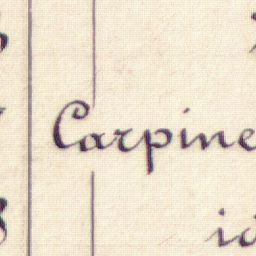 Carpine
id